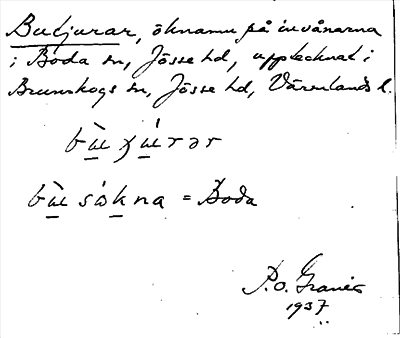 Butjurar, öknamn på invånarna
i Boda sn, Jösse hd, upptecknat i
Brunskogs sn, Jösse hd, Värmlands l.
sòkna = Boda
P.O. Graner
1937